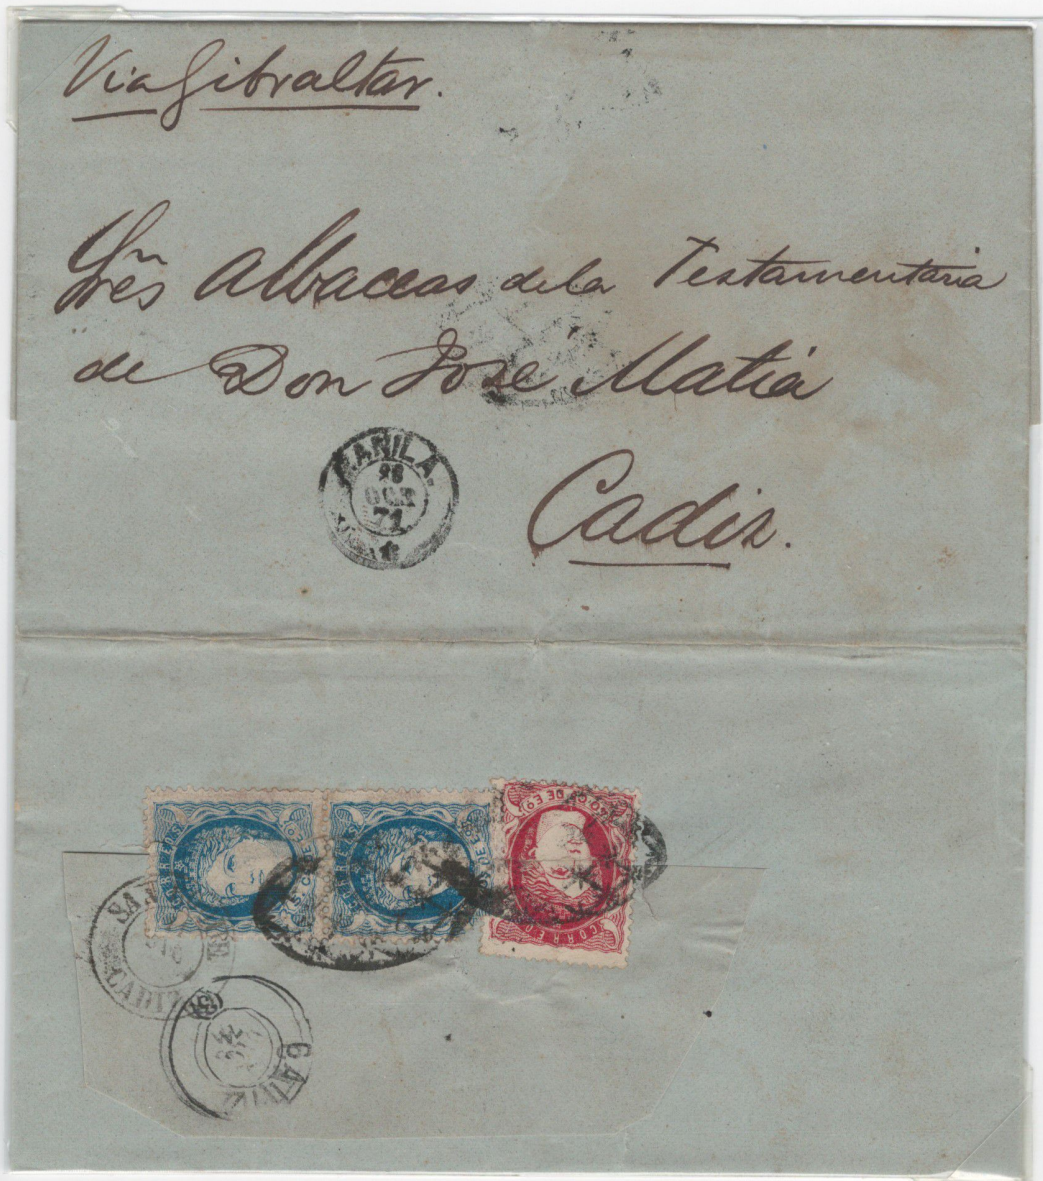 Via Gibraltar.
Sres Albaceas de la Testamentaria
de Don José Matia
Cadiz.
MANILA.
28
OCT
71
CORREOS
CORREOS
40 CS DE EO
CORREOS
CADIZ
CADIZ